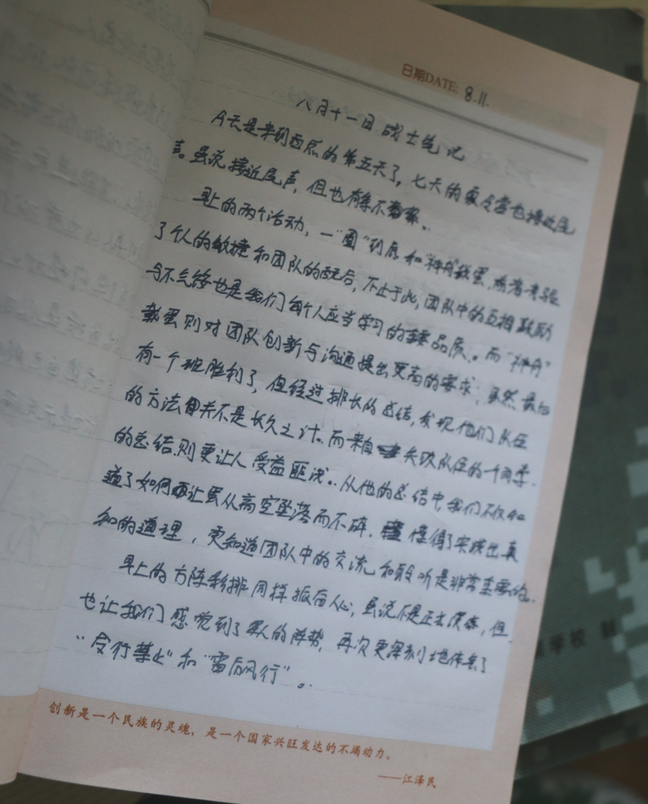 日期DATE: 8.11.
八月十一日 战士笔记
今天是来到西点的第五天了,七天的夏令营也接近尾
声。虽说接近尾声,但也有条不紊。
早上的两个活动,一"圆"到底和"神舟"载蛋,考验
了个人的敏捷和团队的配合,不止于此,团队中的互相鼓励
与不气馁也是我们每个人应当学习的重要品质。而"神舟"
载蛋则对团队创新与沟通提出更高的要求,虽然最后
有一个班胜利了,但经过排长的总结,发现他们队伍
的方法并不是长久之计。而来自失败队伍的一个同学
的总结,则更让人受益匪浅。从他的总结中我们不仅知
道了如何让蛋从高空坠落而不碎,懂得了实践出真
知的道理,更知道团队中的交流和聆听是非常重要的。
早上的方阵彩排同样振奋人心,虽说不是正式演练,但
也让我们感觉到了军人的阵势,再次更深刻地体会了
"令行禁止"和"雷厉风行"。
创新是一个民族的灵魂,是一个国家兴旺发达的不竭动力。
——江泽民
学校 制